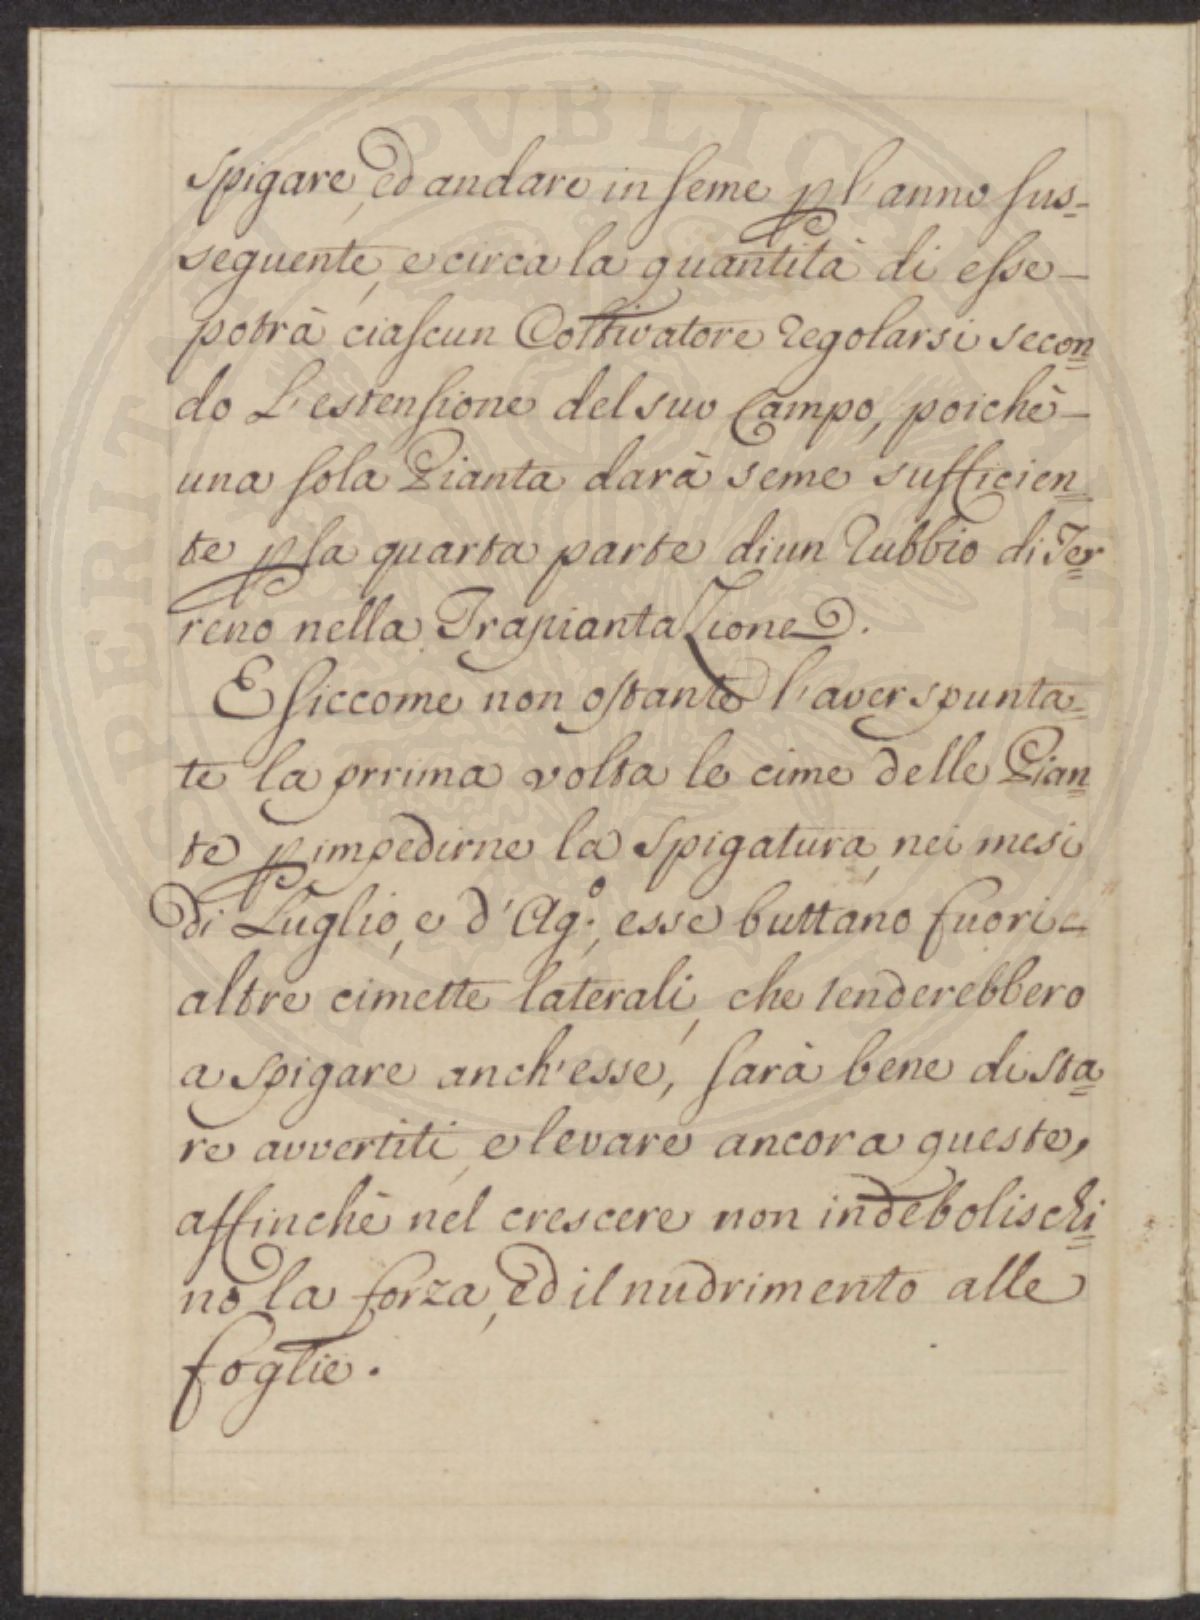 spigare, ed andare in seme p l'anno sus=
seguente, e circa la quantità di esse
potrà ciascun Coltivatore Regolarsi secon=
do L'estensione del suo Campo, poichè
una sola Pianta darà seme sufficien=
te p la quarta parte di un Rubbio di Ter=
reno nella TrapiantaZione.
E siccome non ostante l'aver spunta=
te la prrima volta le cime delle Pian=
te p impedirne la Spigatura, nei mesi
di Luglio, e d'Ag:º, esse buttano fuori
altre cimette laterali, che tenderebbero
a spigare anch'esse, sarà bene di sta=
re avvertiti, e levare ancora queste,
affinchè nel crescere non indebolischi=
no la forza, ed il nudrimento alle
foglie.